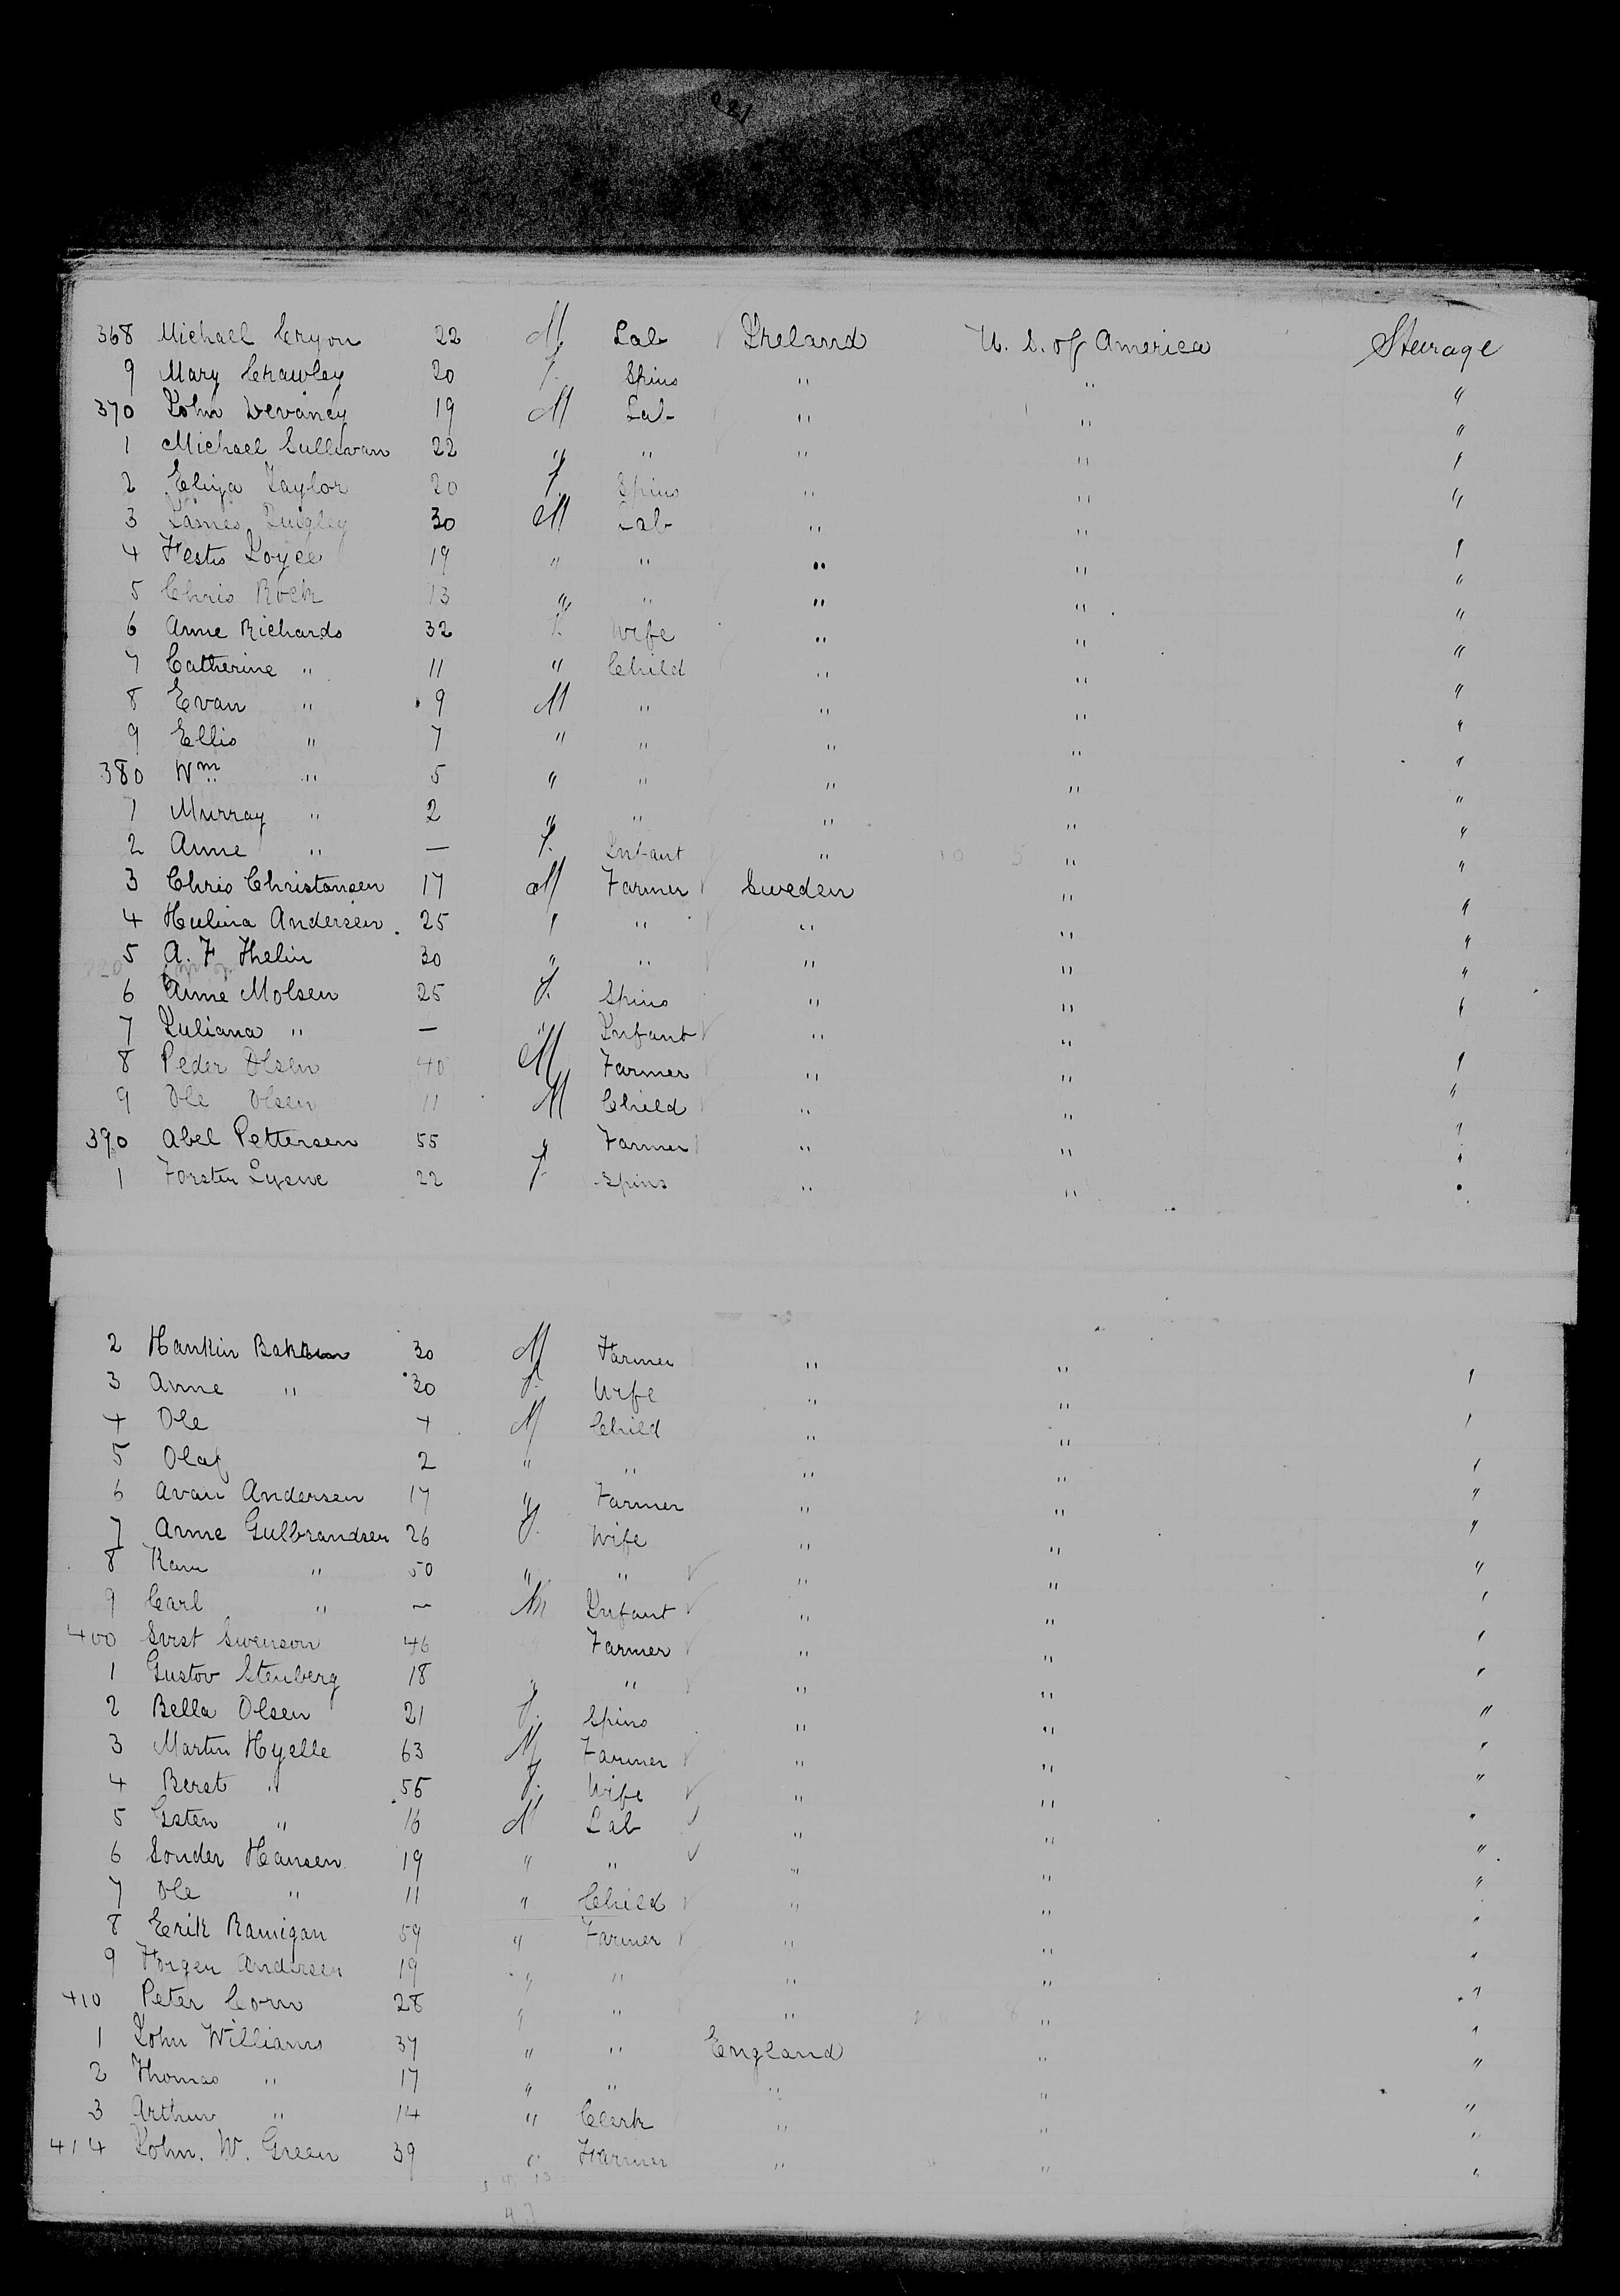 368 Michael Cryon 22 M Lab Ireland U. S. of America Steerage
9 Mary Crawley 20 f. Spins " " "
370 John Devaney 19 M Lab " " "
1 Michael Sullivan 22 " " " " "
2 Eliza Taylor 20 f. Spins " " "
3 James Quigley 30 M Lab " "
4 Festus Joyce 19 " " " " "
5 Chris Rock 13 " " " " "
6 Anne Richards 32 f. Wife " " "
7 Catherine " 11 " Child " " "
8 Evan " 9 M " " " "
9 Ellis " 7 " " " " "
380 Wm " 5 " " " " "
1 Murray " 2 " " " " "
2 Anne " — f. Infant " " "
3 Chris Christansen 17 M Farmer Sweden " "
4 Hulina Andersen 25 " " " " "
5 A. F Thelin 30 " " " " "
6 Anne Molsen 25 f. Spins " " "
7 Juliana " — " Infant " "
8 Peder Olsen 40 M Farmer " " "
9 Ole Olsen 11 M Child " " "
390 Abel Pettersen 55 " Farmer " " "
1 22 f. Spins " " "
2 Hankin 30 M Farmer " "
3 Anne " 30 f. Wife " " "
4 Ole 4 M Child " " "
5 Olaf 2 " " " " "
6 Avan Andersen 17 " Farmer " " "
7 Anne Gulbrandsen 26 f. Wife " " "
8 " 50 " " " " "
9 Carl " — M Infant " " "
400 Swenson 46 " Farmer " " "
1 Gustov Stenberg 18 " " " " "
2 Bella Olsen 21 f. Spins " " "
3 Martin Hyelle 63 M Farmer " " "
4 Beret " 55 f. Wife " " "
5 Gsten " 16 M Lab " " "
6 Sonder Hansen 19 " " " " "
7 Ole " 11 " Child " " "
8 Erik Ramigan 59 " Farmer " " "
9 Andersen 19 " " " " "
410 Peter Corn 28 " " " " "
1 John Williams 37 " " England " "
2 Thomas " 17 " " " " "
3 Arthur " 14 " Clerk " " "
414 John. W. Green 39 " Farmer " " "